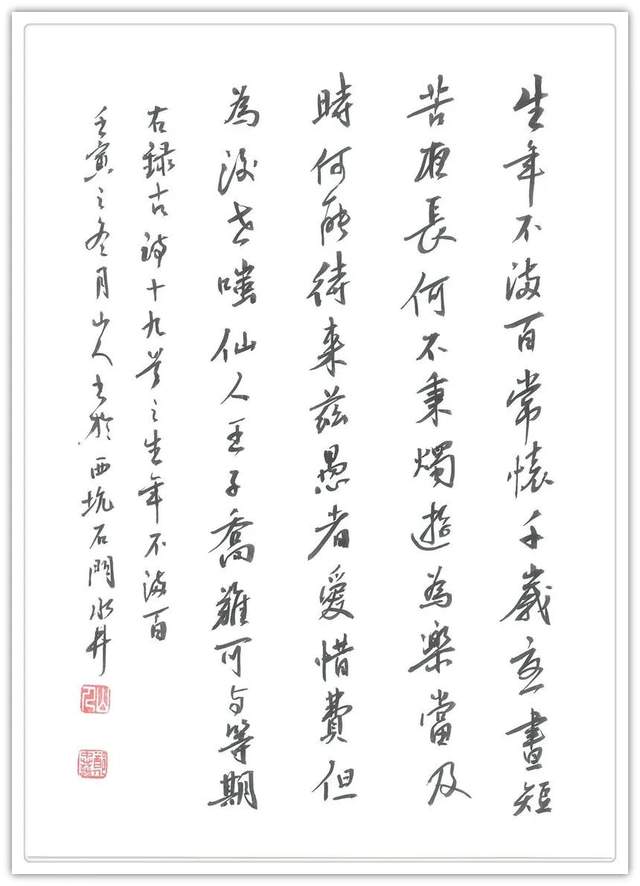 生年不滿百常懷千歲憂晝短
苦夜長何不秉燭遊為樂當及
時何能待來茲愚者愛惜費但
為後世嗤仙人王子喬難可与等期
右録古詩十九首之生年不滿百
壬寅之冬月山人書於西坑石門水井
山人